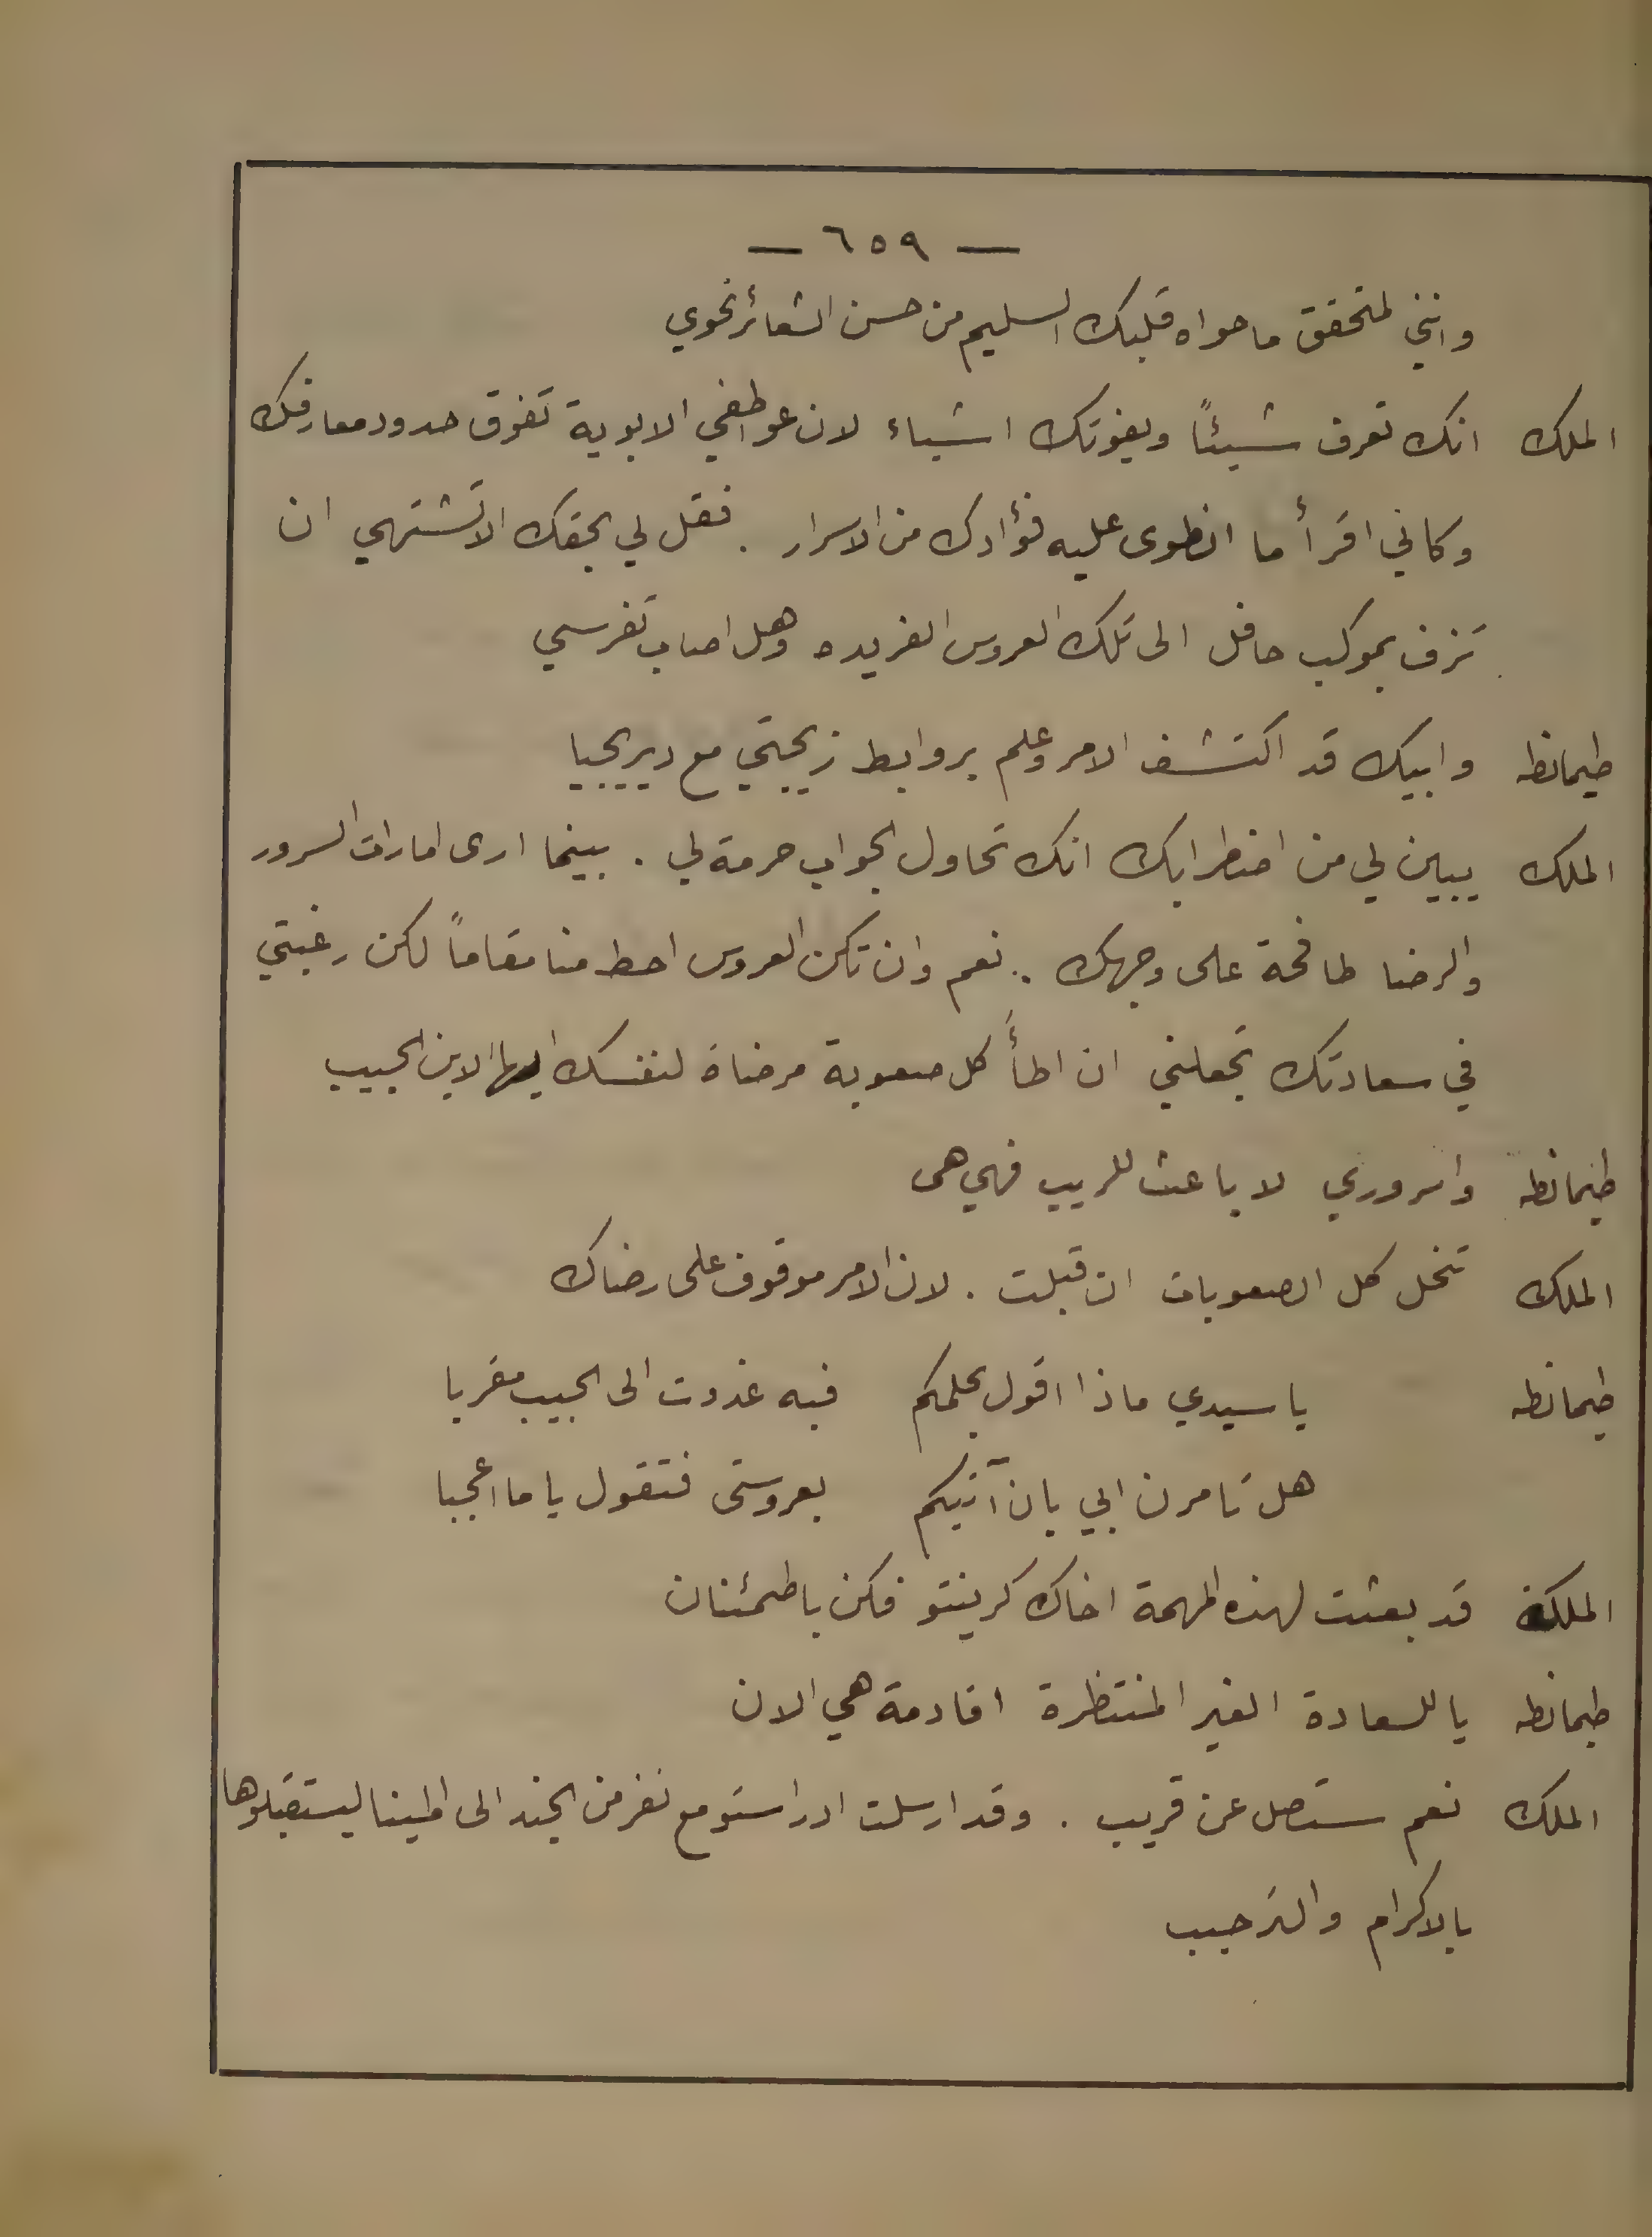 — ٦٥٩ —
وانني لمتحقق ما حواه قلبك السليم من حسن الشعائر نحوي
الملك انك تعرف شيئاً ويفوتك اشياء لان عواطفي الابوية تفوق حدود معارفك
وكاني اقرأ ما انطوى عليه فؤادك من الاسرار . فقل لي بحقك الا تشتهي ان
تزف بموكب حافل الى تلك العروس الفريده وهل اصاب تفرسي
طيمانطه وابيك قد اكتشف الامر وعلم بروابط زيجتي مع ديريجيا
الملك يبين لي من اضطرابك انك تحاول الجواب حرمة لي . بينما ارى امارات السرور
والرضا طافحة على وجهك .. نعم وان تكن العروس احط منا مقاماً لكن رغبتي
في سعادتك تجعلني ان اطأ كل صعوبة مرضاة لنفسك ايها الابن الحبيب
طيمانطه واسروري لا باعث للريب فهي هى
الملك تنحل كل الصعوبات ان قبلت . لان الامر موقوف على رضاك
طيمانطه يا سيدي ماذا اقول بحلمكم فبه غدوت الى الحبيب مقربا
هل تامرن ابي بان آتيكم بعروستى فتقول يا ما اعجبا
الملكة قد بعثت لهذه المهمة اخاك كرينتو فكن باطمئنان
طيمانطه يا للسعادة الغير المنتظرة اقادمة هي الان
الملك نعم ستصل عن قريب . وقد ارسلت ادراستو مع نفر من الجند الى المينا ليستقبلوها
بالاكرام والترحيب